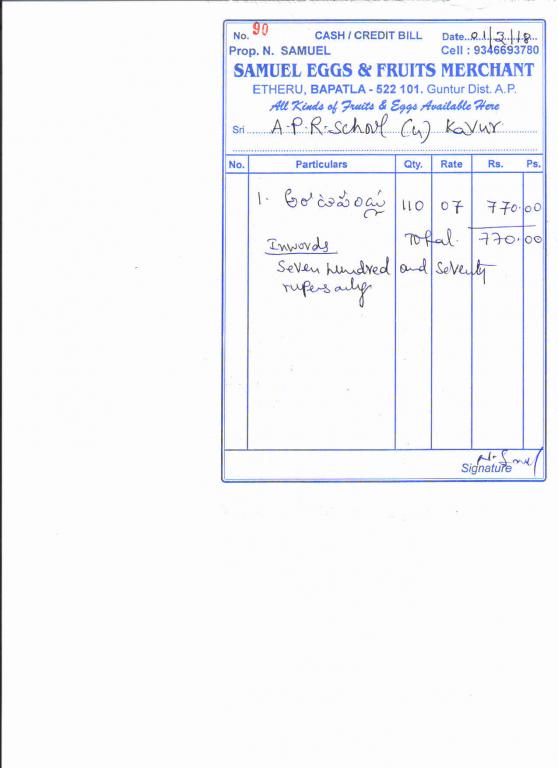 No. 90 CASH / CREDIT BILL Date..01/3/18..
Prop. N. SAMUEL Cell : 9346693780
SAMUEL EGGS & FRUITS MERCHANT
ETHERU, BAPATLA - 522 101. Guntur Dist. A.P.
All Kinds of Fruits & Eggs Available Here
Sri A.P.R. School (G) Kavur
No. Particulars Qty. Rate Rs. Ps.
1. 110 07 770.00
Total. 770.00
Inwords
Seven hundred and seventy
rupees only
Signature